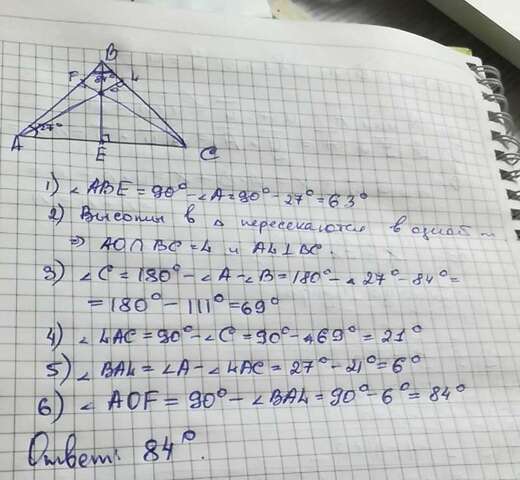 B
F
84°
L
O
A
27°
E
C
1) ∠ABE = 90° - ∠A = 90° - 27° = 63°
2) Высоты в △ пересекаются в одной т.
⇒ AO∩BC = L и AL⊥BC.
3) ∠C = 180° - ∠A - ∠B = 180° - 27° - 84° =
= 180° - 111° = 69°
4) ∠LAC = 90° - ∠C = 90° - 69° = 21°
5) ∠BAL = ∠A - ∠LAC = 27° - 21° = 6°
6) ∠AOF = 90° - ∠BAL = 90° - 6° = 84°
Ответ: 84°.